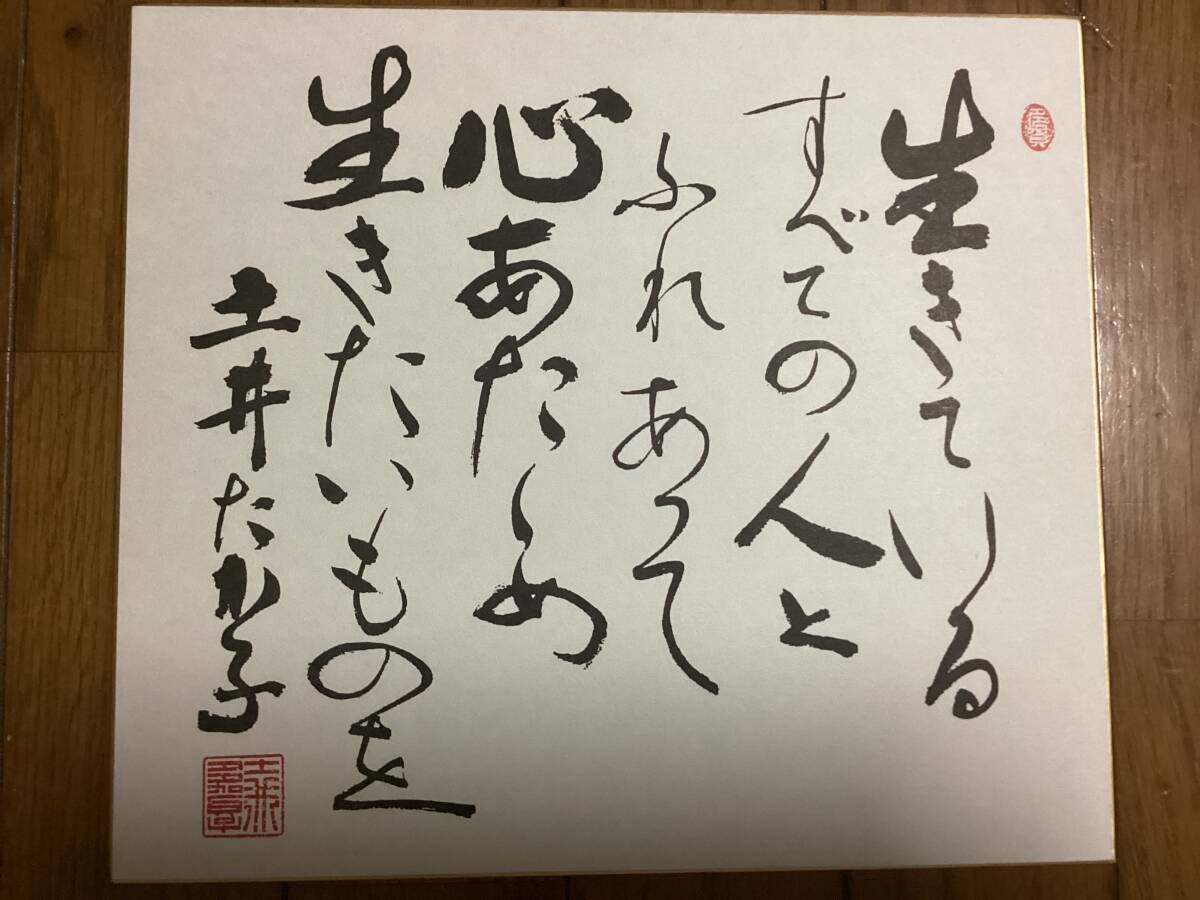 生きている
すべての人と
ふれあって
心あたゝめ
生きたいものを
土井たか子